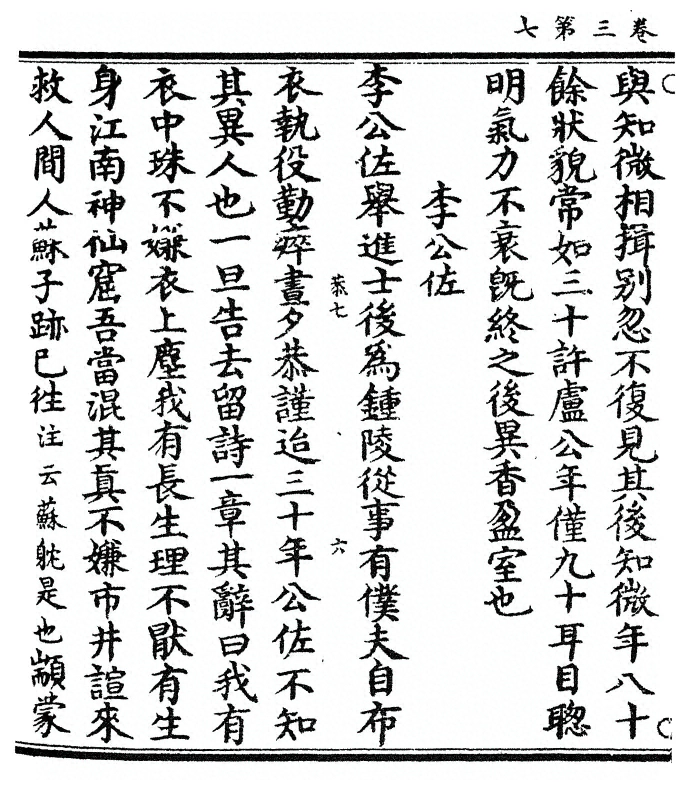 卷三第七
與知微相揖別忽不復見其後知微年八十
餘狀貌常如三十許盧公年僅九十耳目聦
明氣力不衰旣終之後異香盈室也
李公佐
李公佐舉進士後爲鍾陵從事有僕夫自布
恭七 六
衣執役勤瘁晝夕恭謹迨三十年公佐不知
其異人也一旦告去留詩一章其辭曰我有
衣中珠不嫌衣上塵我有長生理不猒有生
身江南神仙窟吾當混其眞不嫌市井諠來
救人間人蘇子跡已徃注云蘇躭是也顓蒙